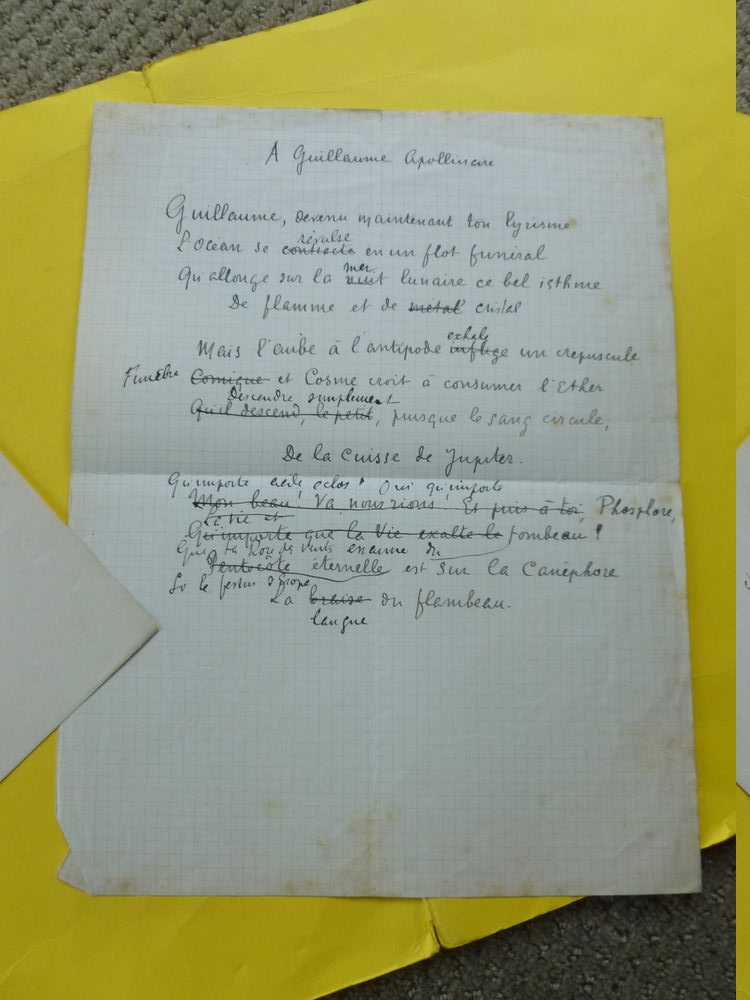 A Guillaume Apollinaire
Guillaume, devenu maintenant ton lyrisme
révulse
L'Océan se contracte en un flot funéral
mer
Qu'allonge sur la nuit lunaire ce bel isthme
De flamme et de métal cristal
exhale
Mais l'aube à l'antipode inflige un crepuscule
Funèbre Comique et Cosme croit à consumer l'Ether
Descendre simplement
Qu'il descend, le petit, puisque le sang circule,
De la Cuisse de Jupiter.
Qu'importe éclos! Oui qu'importe
Mon beau! Va nous rions! Et puis à toi, Phosphore,
La vie et
Qu'importe que la Vie exalte le tombeau!
Que ta Rose des Vents du
Pentecôte éternelle est sur la Canéphore
La braise du flambeau.
langue